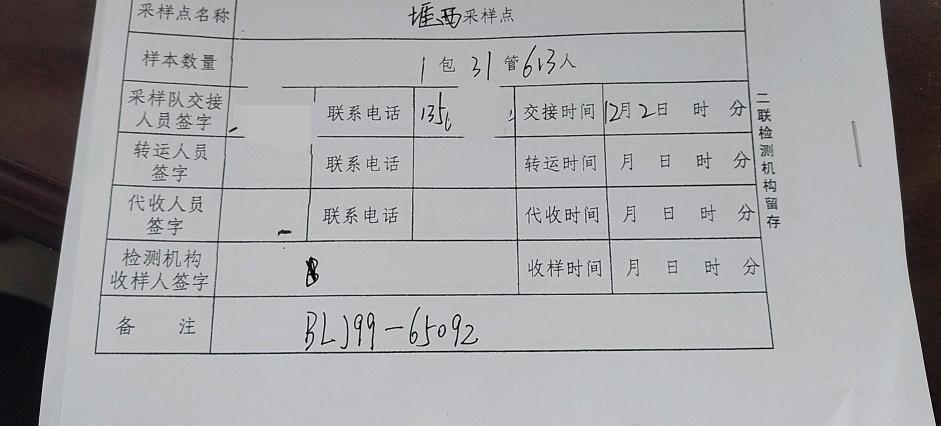 采样点名称 堐西采样点
样本数量 1包 31管613人
采样队交接人员签字 联系电话 135 交接时间 12月2日 时 分
转运人员签字 联系电话 转运时间 月 日 时 分
代收人员签字 联系电话 代收时间 月 日 时 分
检测机构收样人签字 收样时间 月 日 时 分
备 注 BLJ99-65092
二联检测机构留存